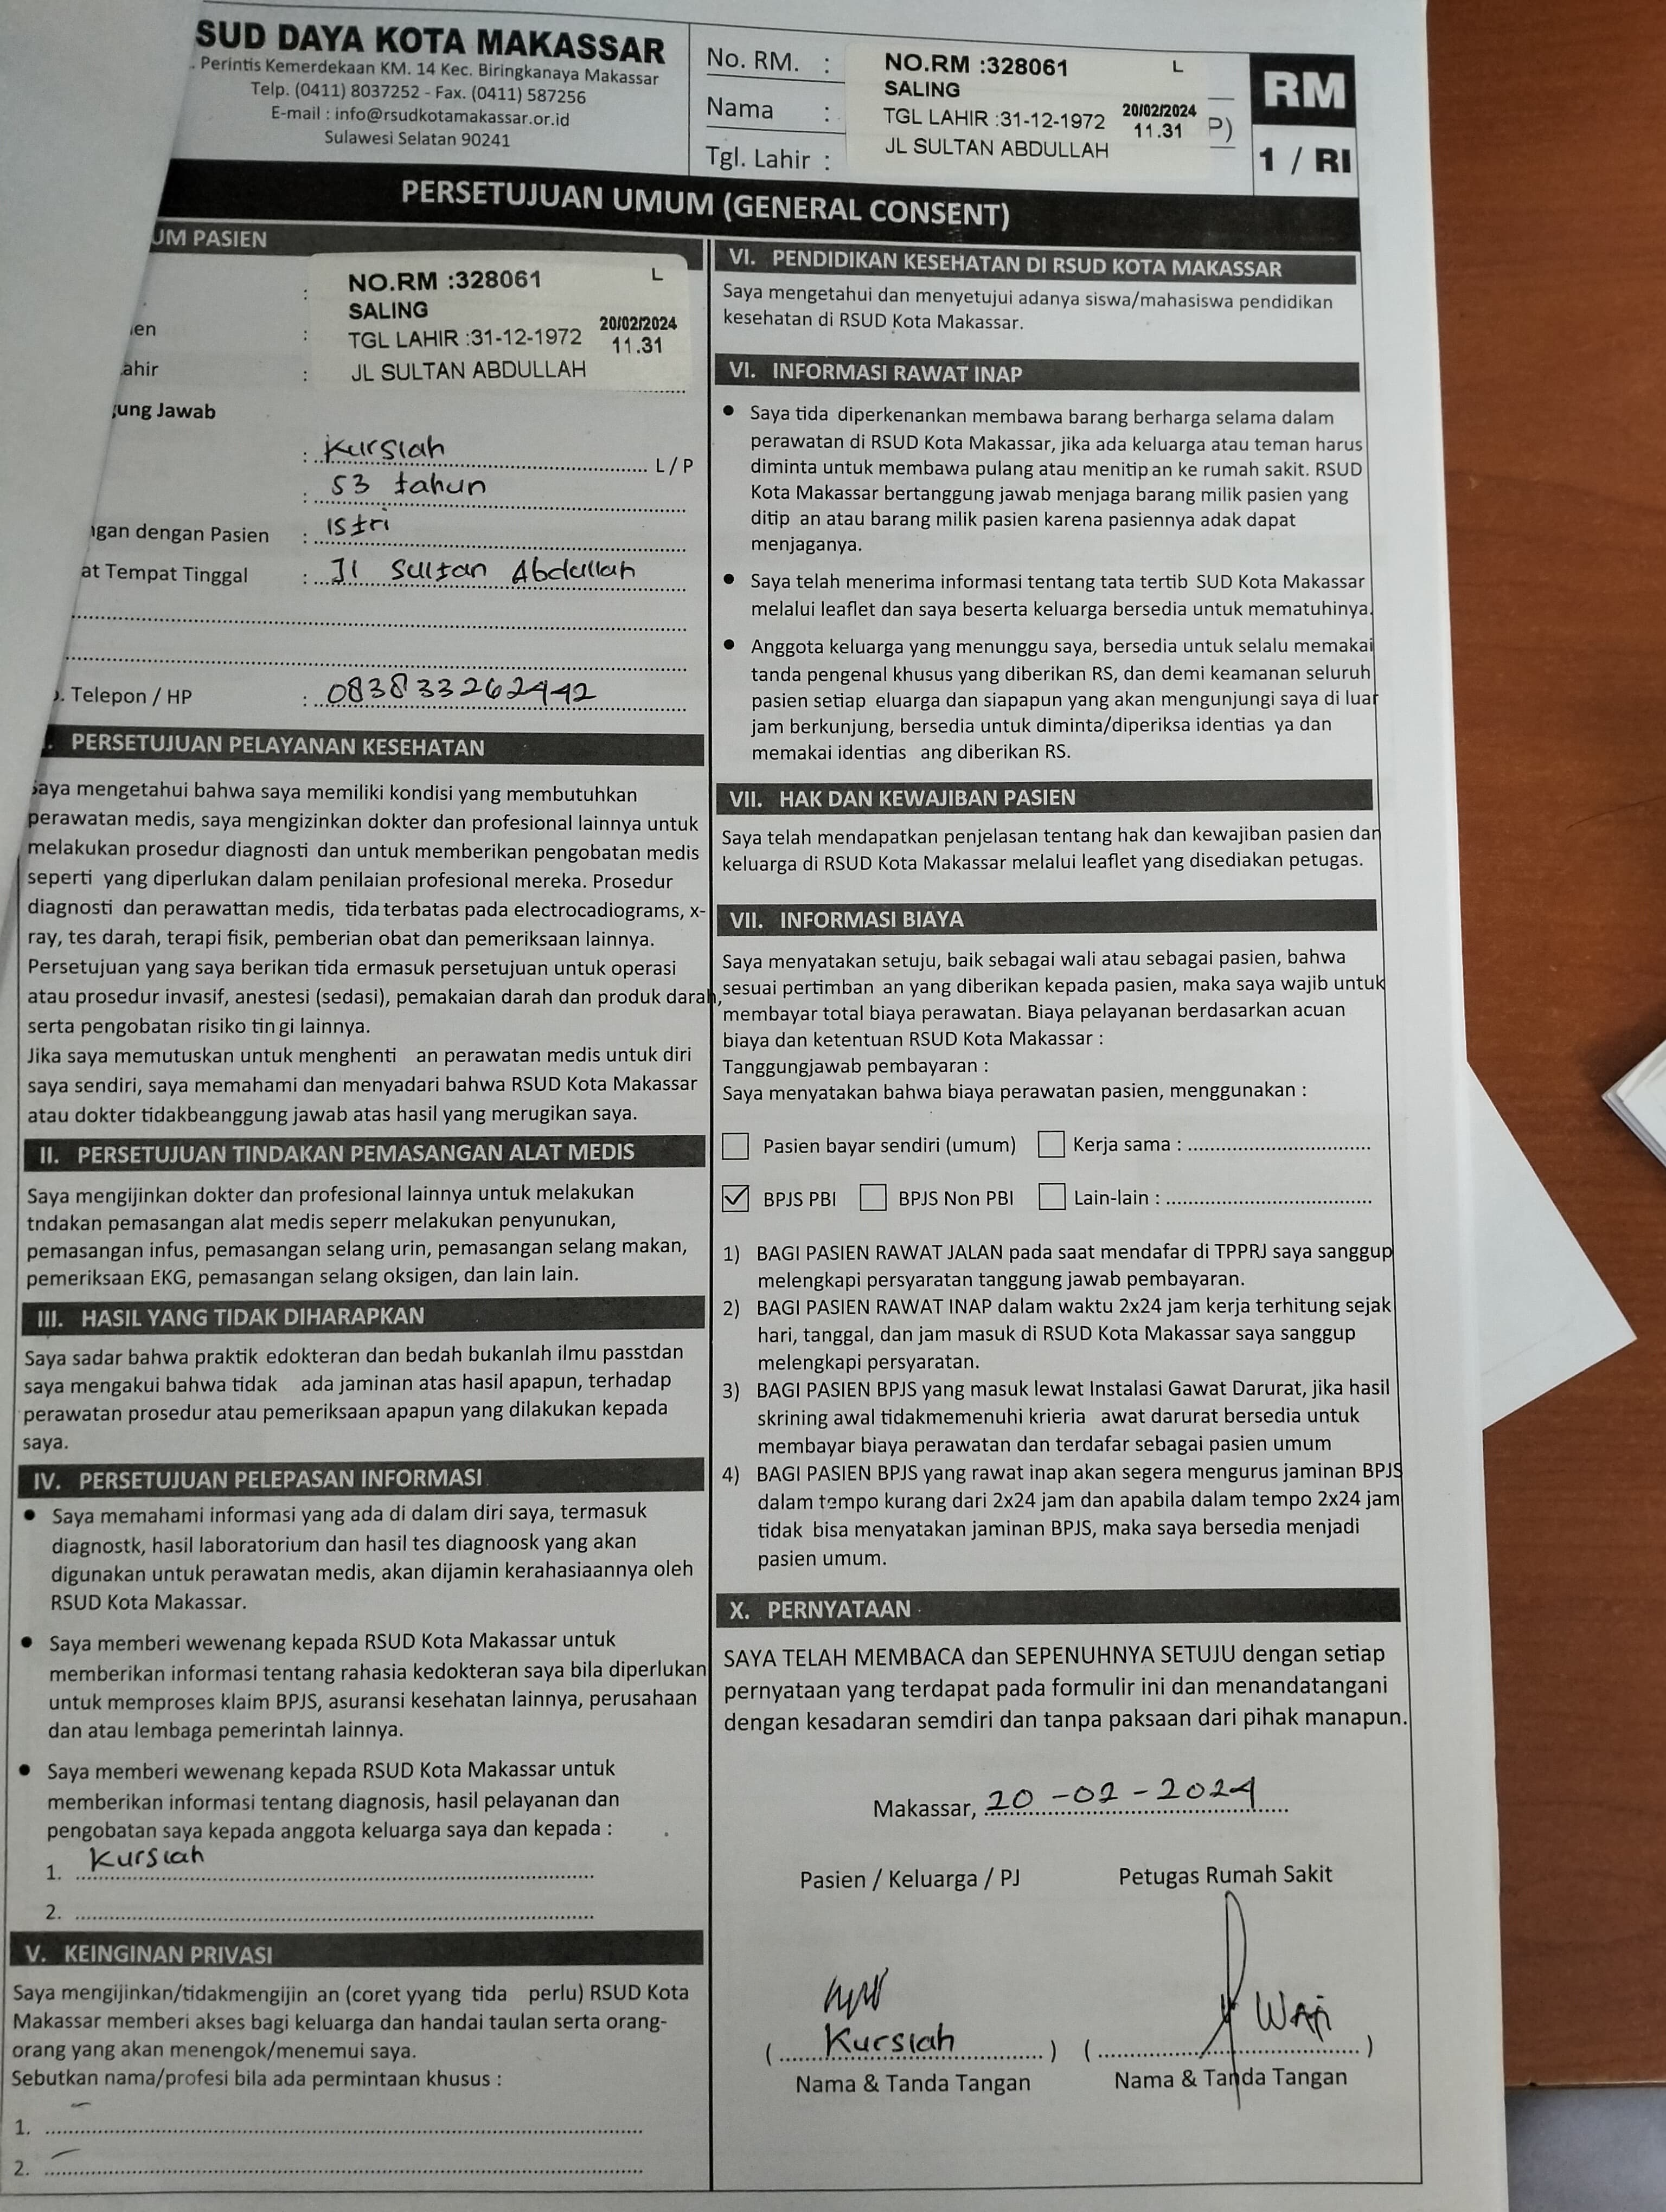 SUD DAYA KOTA MAKASSAR
. Perintis Kemerdekaan KM. 14 Kec. Biringkanaya Makassar
Telp. (0411) 8037252 - Fax. (0411) 587256
E-mail : info@rsudkotamakassar.or.id
Sulawesi Selatan 90241
No. RM. :
Nama :
Tgl. Lahir :
NO.RM :328061 L
SALING
TGL LAHIR :31-12-1972 20/02/2024
11.31
JL SULTAN ABDULLAH
P)
RM
1 / RI
PERSETUJUAN UMUM (GENERAL CONSENT)
UM PASIEN
NO.RM :328061 L
SALING
TGL LAHIR :31-12-1972 20/02/2024
11.31
JL SULTAN ABDULLAH
:
ien :
ahir :
ung Jawab
: Kursiah L / P
: 53 tahun
ngan dengan Pasien : Istri
at Tempat Tinggal : Jl Sultan Abdullah
. Telepon / HP : 083833262442
. PERSETUJUAN PELAYANAN KESEHATAN
Saya mengetahui bahwa saya memiliki kondisi yang membutuhkan
perawatan medis, saya mengizinkan dokter dan profesional lainnya untuk
melakukan prosedur diagnosti dan untuk memberikan pengobatan medis
seperti yang diperlukan dalam penilaian profesional mereka. Prosedur
diagnosti dan perawattan medis, tida terbatas pada electrocadiograms, x-
ray, tes darah, terapi fisik, pemberian obat dan pemeriksaan lainnya.
Persetujuan yang saya berikan tida ermasuk persetujuan untuk operasi
atau prosedur invasif, anestesi (sedasi), pemakaian darah dan produk darah,
serta pengobatan risiko tin gi lainnya.
Jika saya memutuskan untuk menghenti an perawatan medis untuk diri
saya sendiri, saya memahami dan menyadari bahwa RSUD Kota Makassar
atau dokter tidakbeanggung jawab atas hasil yang merugikan saya.
II. PERSETUJUAN TINDAKAN PEMASANGAN ALAT MEDIS
Saya mengijinkan dokter dan profesional lainnya untuk melakukan
tndakan pemasangan alat medis seperr melakukan penyunukan,
pemasangan infus, pemasangan selang urin, pemasangan selang makan,
pemeriksaan EKG, pemasangan selang oksigen, dan lain lain.
III. HASIL YANG TIDAK DIHARAPKAN
Saya sadar bahwa praktik edokteran dan bedah bukanlah ilmu passtdan
saya mengakui bahwa tidak ada jaminan atas hasil apapun, terhadap
perawatan prosedur atau pemeriksaan apapun yang dilakukan kepada
saya.
IV. PERSETUJUAN PELEPASAN INFORMASI
● Saya memahami informasi yang ada di dalam diri saya, termasuk
diagnostk, hasil laboratorium dan hasil tes diagnoosk yang akan
digunakan untuk perawatan medis, akan dijamin kerahasiaannya oleh
RSUD Kota Makassar.
● Saya memberi wewenang kepada RSUD Kota Makassar untuk
memberikan informasi tentang rahasia kedokteran saya bila diperlukan
untuk memproses klaim BPJS, asuransi kesehatan lainnya, perusahaan
dan atau lembaga pemerintah lainnya.
● Saya memberi wewenang kepada RSUD Kota Makassar untuk
memberikan informasi tentang diagnosis, hasil pelayanan dan
pengobatan saya kepada anggota keluarga saya dan kepada :
1. Kursiah
2.
V. KEINGINAN PRIVASI
Saya mengijinkan/tidakmengijin an (coret yyang tida perlu) RSUD Kota
Makassar memberi akses bagi keluarga dan handai taulan serta orang-
orang yang akan menengok/menemui saya.
Sebutkan nama/profesi bila ada permintaan khusus :
1. -
2. -
VI. PENDIDIKAN KESEHATAN DI RSUD KOTA MAKASSAR
Saya mengetahui dan menyetujui adanya siswa/mahasiswa pendidikan
kesehatan di RSUD Kota Makassar.
VI. INFORMASI RAWAT INAP
● Saya tida diperkenankan membawa barang berharga selama dalam
perawatan di RSUD Kota Makassar, jika ada keluarga atau teman harus
diminta untuk membawa pulang atau menitip an ke rumah sakit. RSUD
Kota Makassar bertanggung jawab menjaga barang milik pasien yang
ditip an atau barang milik pasien karena pasiennya adak dapat
menjaganya.
● Saya telah menerima informasi tentang tata tertib SUD Kota Makassar
melalui leaflet dan saya beserta keluarga bersedia untuk mematuhinya.
● Anggota keluarga yang menunggu saya, bersedia untuk selalu memakai
tanda pengenal khusus yang diberikan RS, dan demi keamanan seluruh
pasien setiap eluarga dan siapapun yang akan mengunjungi saya di luar
jam berkunjung, bersedia untuk diminta/diperiksa identias ya dan
memakai identias ang diberikan RS.
VII. HAK DAN KEWAJIBAN PASIEN
Saya telah mendapatkan penjelasan tentang hak dan kewajiban pasien dan
keluarga di RSUD Kota Makassar melalui leaflet yang disediakan petugas.
VII. INFORMASI BIAYA
Saya menyatakan setuju, baik sebagai wali atau sebagai pasien, bahwa
sesuai pertimban an yang diberikan kepada pasien, maka saya wajib untuk
membayar total biaya perawatan. Biaya pelayanan berdasarkan acuan
biaya dan ketentuan RSUD Kota Makassar :
Tanggungjawab pembayaran :
Saya menyatakan bahwa biaya perawatan pasien, menggunakan :
☐ Pasien bayar sendiri (umum) ☐ Kerja sama :
☑ BPJS PBI ☐ BPJS Non PBI ☐ Lain-lain :
1) BAGI PASIEN RAWAT JALAN pada saat mendafar di TPPRJ saya sanggup
melengkapi persyaratan tanggung jawab pembayaran.
2) BAGI PASIEN RAWAT INAP dalam waktu 2x24 jam kerja terhitung sejak
hari, tanggal, dan jam masuk di RSUD Kota Makassar saya sanggup
melengkapi persyaratan.
3) BAGI PASIEN BPJS yang masuk lewat Instalasi Gawat Darurat, jika hasil
skrining awal tidakmemenuhi krieria awat darurat bersedia untuk
membayar biaya perawatan dan terdafar sebagai pasien umum
4) BAGI PASIEN BPJS yang rawat inap akan segera mengurus jaminan BPJS
dalam tempo kurang dari 2x24 jam dan apabila dalam tempo 2x24 jam
tidak bisa menyatakan jaminan BPJS, maka saya bersedia menjadi
pasien umum.
X. PERNYATAAN
SAYA TELAH MEMBACA dan SEPENUHNYA SETUJU dengan setiap
pernyataan yang terdapat pada formulir ini dan menandatangani
dengan kesadaran semdiri dan tanpa paksaan dari pihak manapun.
Makassar, 20 -02 - 2024
Pasien / Keluarga / PJ Petugas Rumah Sakit
( Kursiah ) ( )
Nama & Tanda Tangan Nama & Tanda Tangan